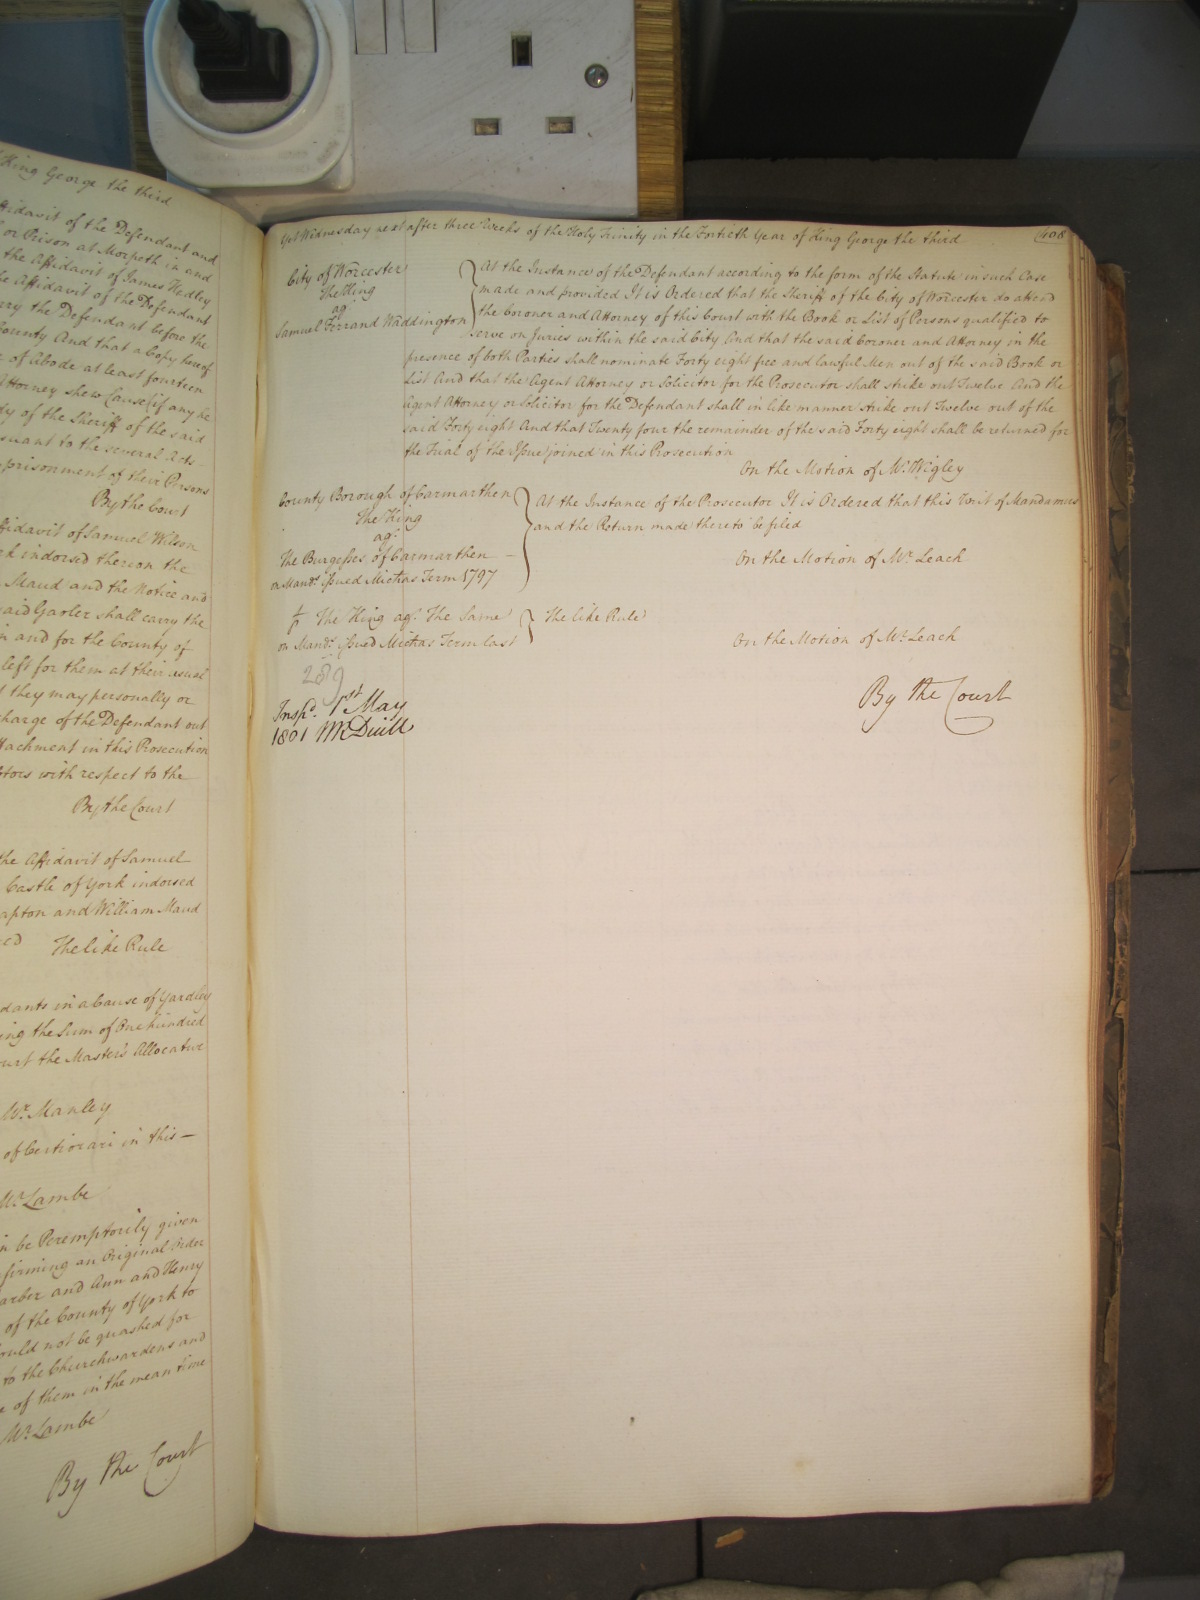 King George the third
ffidavit of the Defendant and
or Prison at Morpeth in and
the Affidavit of James Hedley
he Affidavit of the Defendant
rry the Defendant before the
County And that a Copy hereof
of abode at least fourteen
Attorney shew Cause (if any he
dy of the Sheriff of the said
suant to the several Acts
prisonment of their Persons
By the Court
ffidavit of Samuel Wilson
k indorsed thereon the
Maud and the Notice and
said Gaoler shall carry the
in and for the County of
left for them at their usual
they may personally or
charge of the Defendant out
ttachment in this Prosecution
itors with respect to the
By the Court
the Affidavit of Samuel
Castle of York indorsed
apton and William Maud
ed The like Rule
dants in a Cause of Yardley
ing the Sum of One hundred
ourt the Master's Allocatur
Mr. Manley
of Certiorari in this
Mr. Lambe
n be Peremptorily given
firming an Original Order
arber and Ann and Henry
of the County of York to
ould not be quashed for
to the Churchwardens and
e of them in the mean time
Mr. Lambe
By the Court
Yet Wednesday next after three Weeks of the Holy Trinity in the Fortieth Year of King George the third 108
City of Worcester
The King
agt
Samuel Ferrand Waddington
At the Instance of the Defendant according to the form of the Statute in such Case
made and provided It is Ordered that the Sheriff of the City of Worcester do attend
the Coroner and Attorney of this Court with the Book or List of Persons qualified to
serve on Juries within the said City And that the said Coroner and Attorney in the
presence of both Parties shall nominate Forty eight free and lawful Men out of the said Book or
List And that the Agent Attorney or Solicitor for the Prosecutor shall strike out Twelve And the
Agent Attorney or Solicitor for the Defendant shall in like manner strike out Twelve out of the
said Forty eight And that Twenty four the remainder of the said Forty eight shall be returned for
the Trial of the Issue joined in this Prosecution
On the Motion of Mr. Wigley
County Borough of Carmarthen
The King
agt
The Burgesses of Carmarthen
on Mands. issued Michas Term 1797
At the Instance of the Prosecutor It is Ordered that this Writ of Mandamus
and the Return made thereto be filed
On the Motion of Mr. Leach
The King agt. The Same
on Mands. issued Michas Term last
The like Rule
On the Motion of Mr. Leach
289
Inspd. 1st May
1801
By the Court